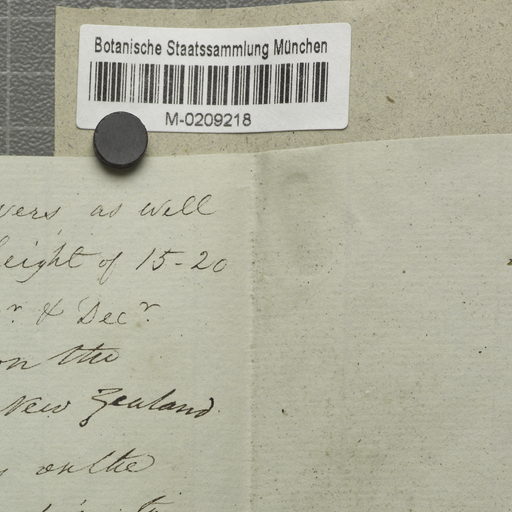 Botanische Staatssammlung München
M-0209218
as well
height of 15-20
& Decr
on the
New Zealand
on the